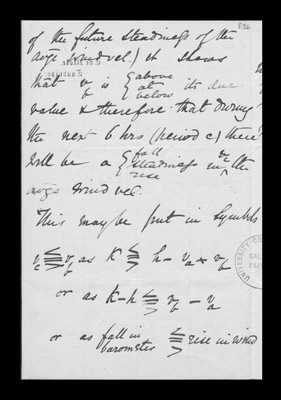 P26
of the future steadiness of the
avge wind vel.) it shows
that v_b is { above at below its due
value & therefore that during
the next 6 hrs (period c) there
will be a { fall steadiness rise in the
avge wind vel.
This may be put in Symbols
or as K - h ⋚ v_b - v_a
or as fall in barometer ⋚ rise in wind
UNIVERSITY